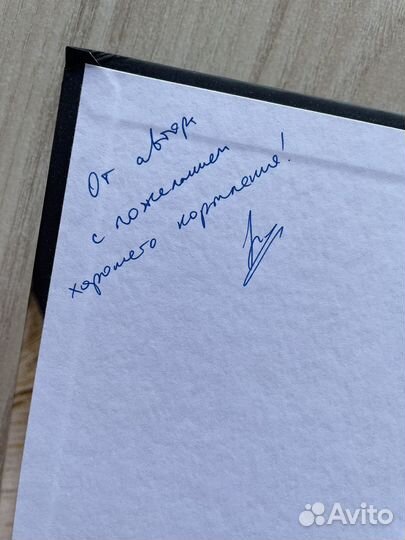 От автора
с пожеланием
хорошего кормления!
Avito